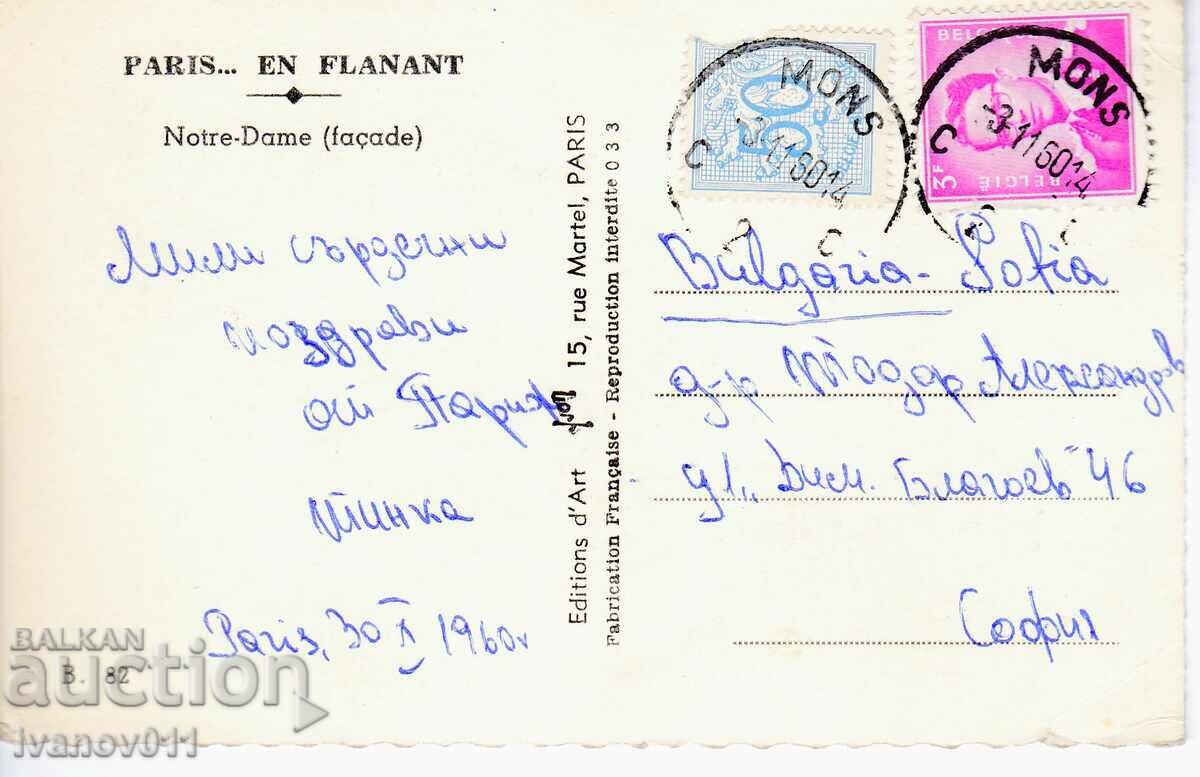 PARIS... EN FLANANT
Notre-Dame (façade)
Мили сърдечни
поздрави
от Париж
Тинка
Paris, 30 X 1960г
B. 82
Editions d'Art Yvon 15, rue Martel, PARIS
Fabrication Française - Reproduction interdite 033
50
BELGIE
MONS
-3-11 60 14
C
C
BELGIQUE
3F
BELGIË
MONS
-3-11 60 14
C
C
Bulgaria - Sofia
д-р Тодор Александров
ул. „Дим. Благоев" 46
София
BALKAN
auction
ivanov011